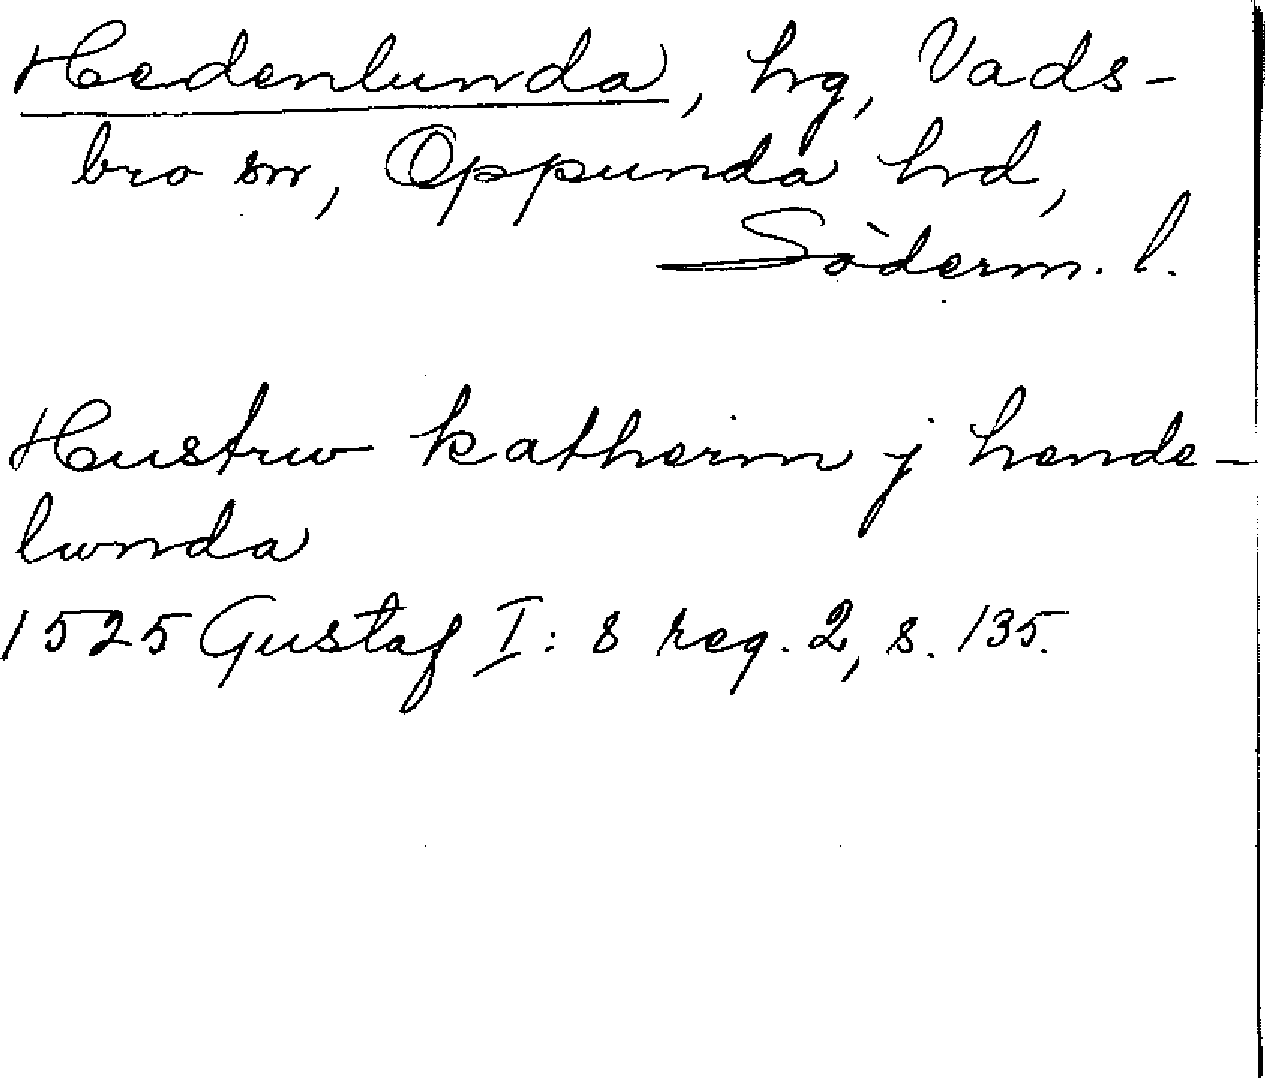 Hedenlunda, hg, Vads-
bro sn, Oppunda hd,
Söderm. l.
Hustrw katherin j hende-
lwnda
1525 Gustaf I: s reg. 2, s. 135.